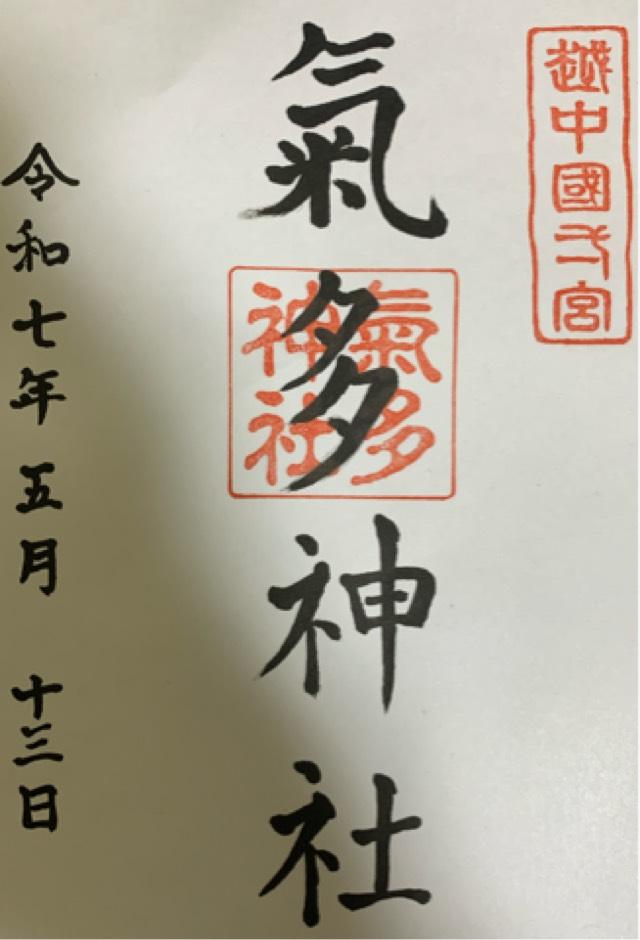 越中國弌宮
氣多神社
氣多
神社
令和七年五月十三日